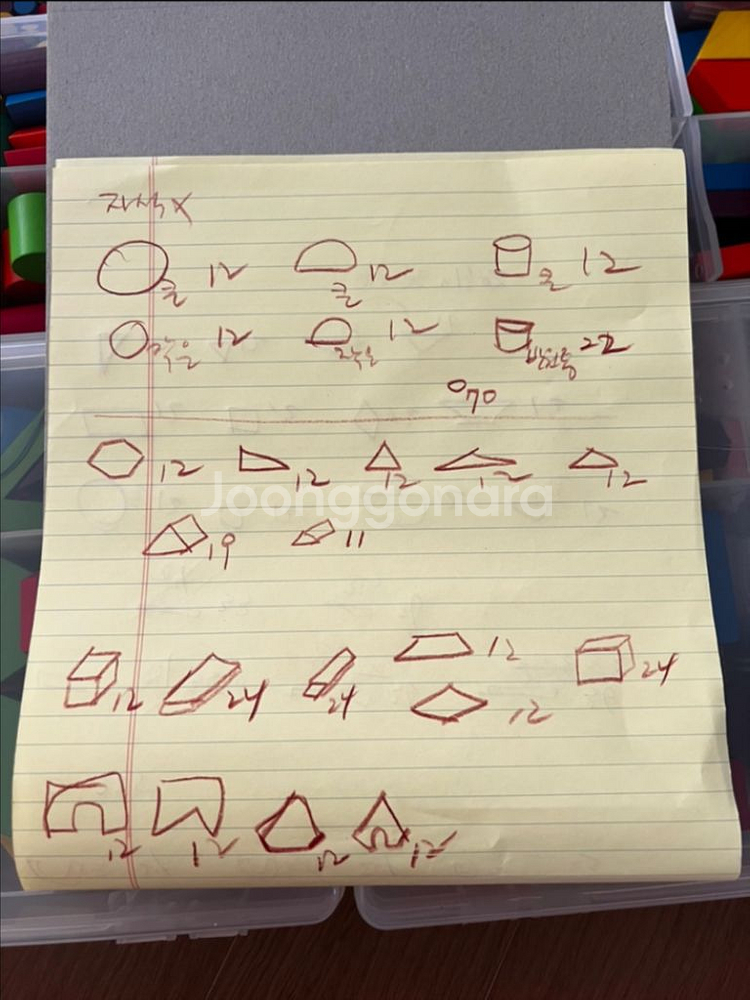 자석 X
큰 12 큰 12 큰 12
작은 12 작은 12 반원통 22
70
12 12 12 12 12
Joonggonara
19 11
12
12 24 24 24
12
12 12 12 12